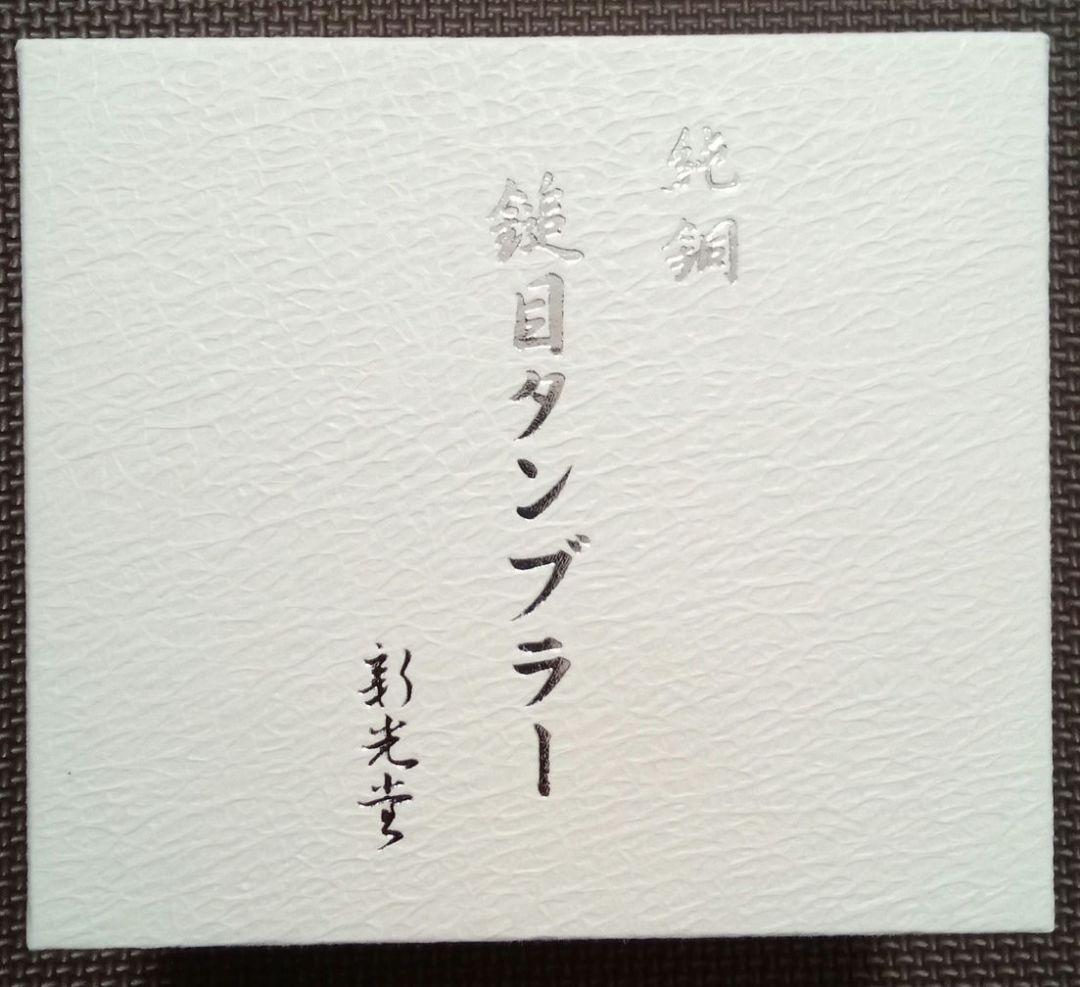 純銅
鎚目タンブラー
新光堂